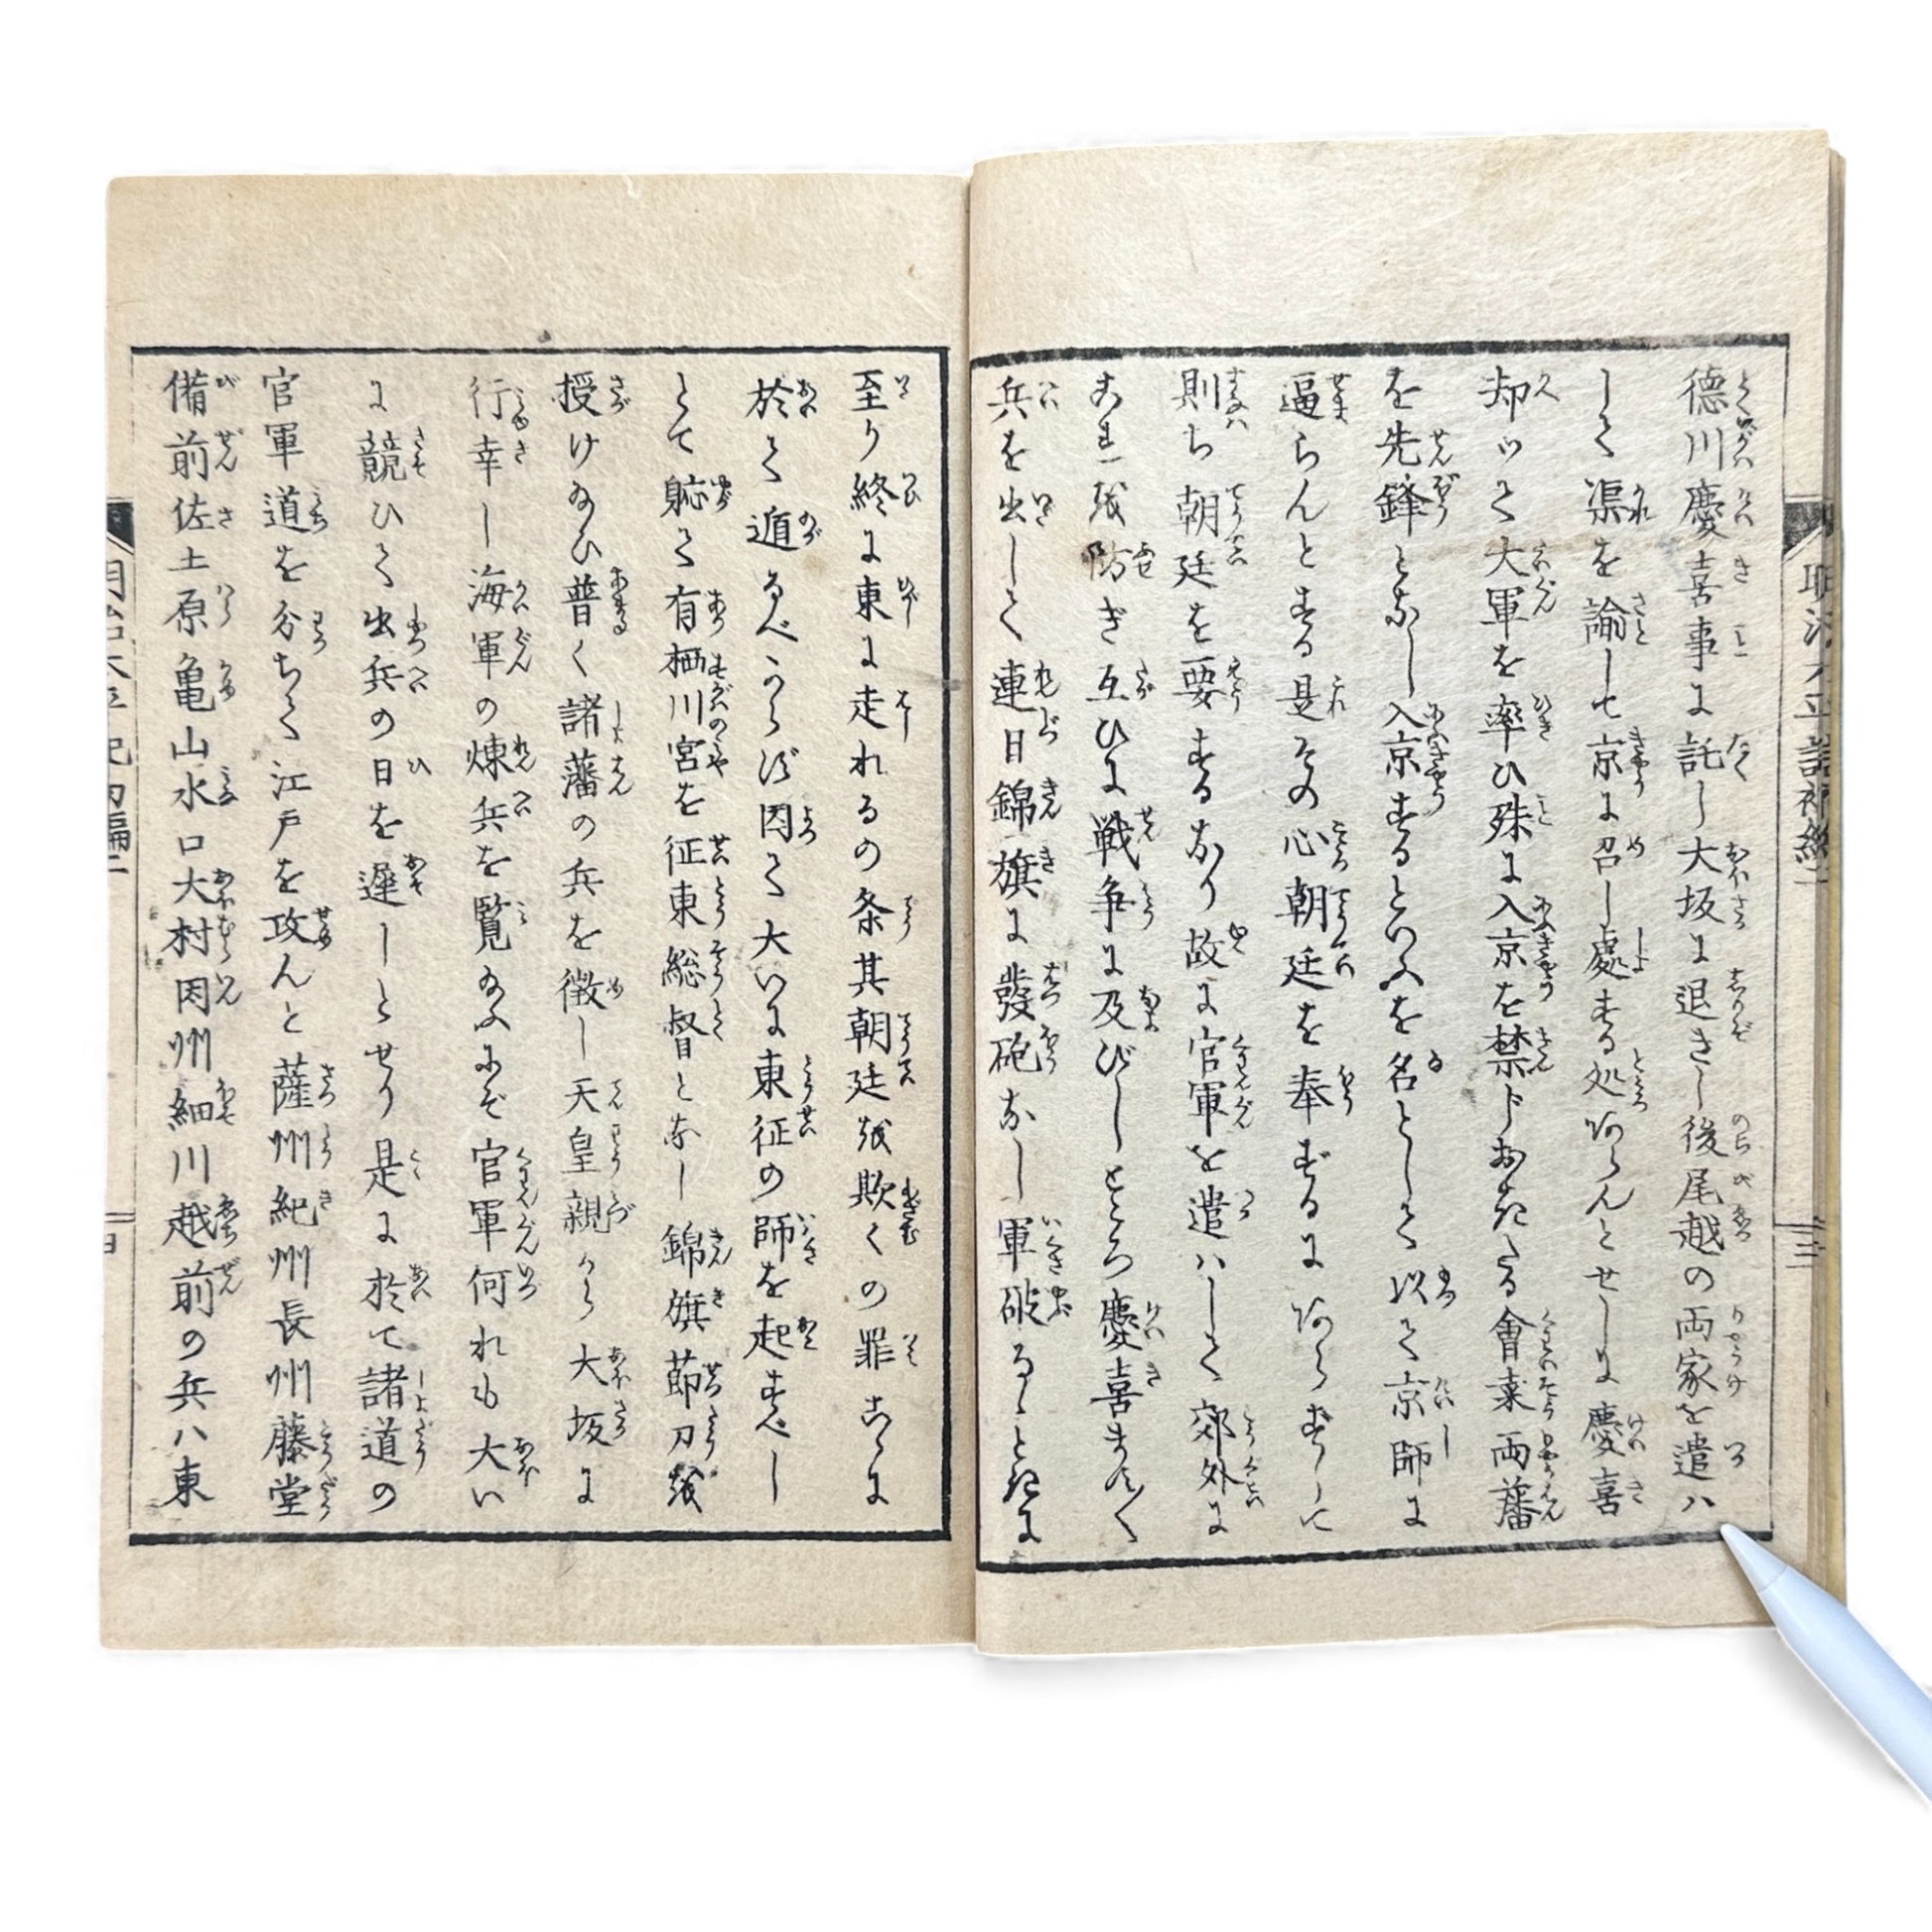 徳川慶喜事に託し大坂に退きし後尾越の両家を遣ハ
して渠を諭して京に召し處する処あらんとせしに慶喜
却つて大軍を率ひ殊に入京を禁ドおきたる會桒両藩
を先鋒となし入京するといふを名として以て京師に
逼らんとする是その心朝廷を奉ずるにあらずして
則ち朝廷を要するなり故に官軍を遣ハして郊外に
これを防ぎ互ひに戦争に及びしところ慶喜ますく
兵を出して連日錦旗に發砲なし軍破るゝときに
至り終に東に走れるの条其朝廷を欺くの罪こゝに
於て遁るべからず因て大いに東征の師を起すべし
とて躮て有栖川宮を征東総督となし錦旗節刀を
授け給ひ普く諸藩の兵を徴し天皇親から大坂に
行幸し海軍の煉兵を覧給ふにぞ官軍何れも大い
に競ひて出兵の日を遅しとせり是に於て諸道の
官軍道を分ちて江戸を攻んと薩州紀州長州藤堂
備前佐土原亀山水口大村因州細川越前の兵ハ東